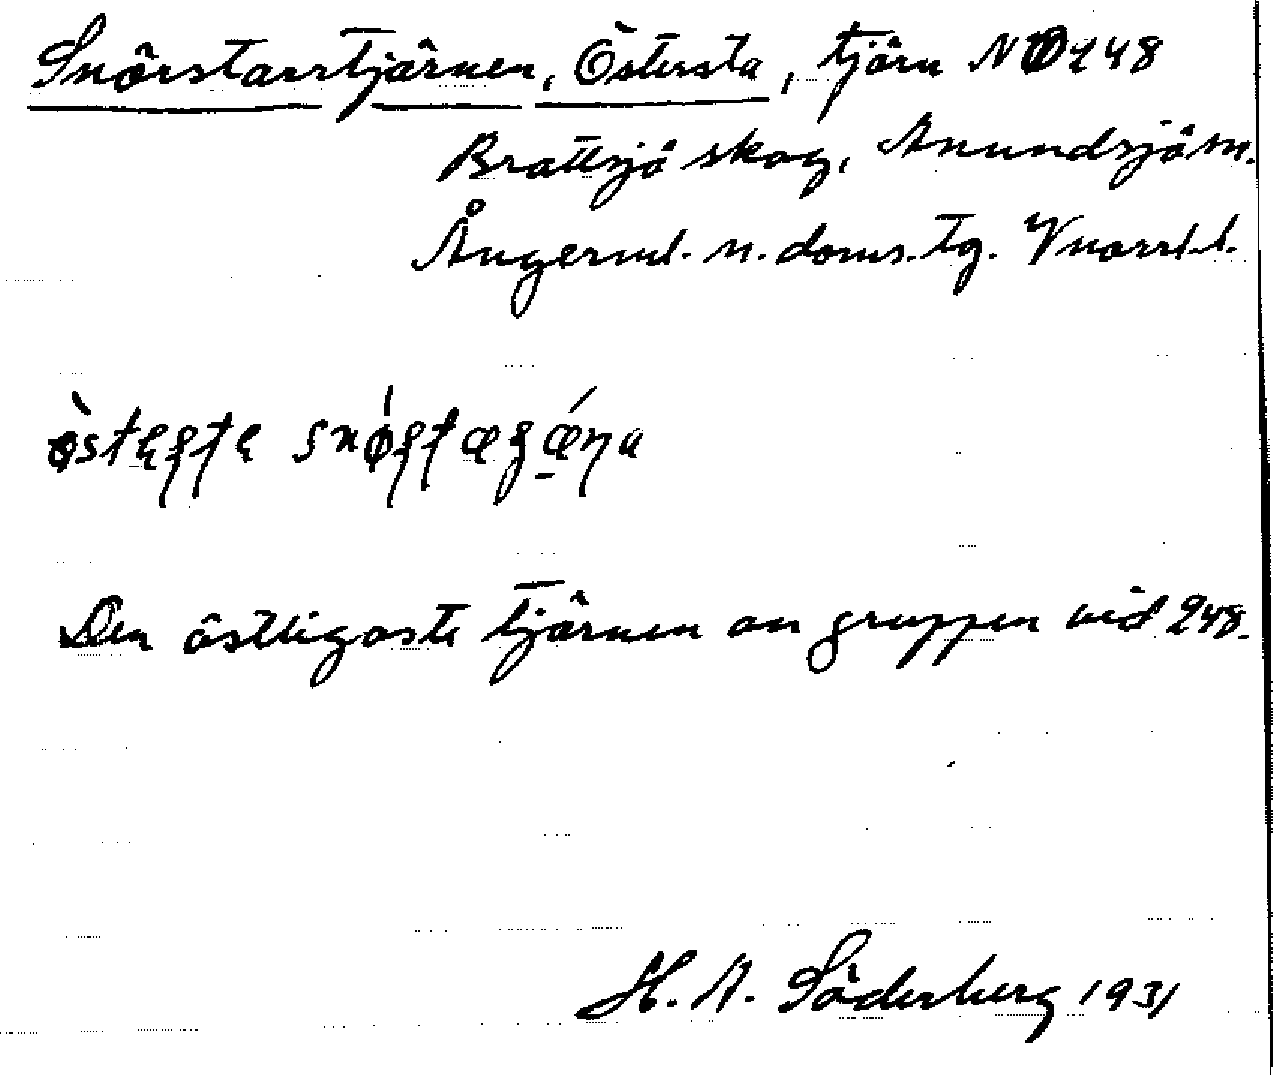 Snörstarrtjärnen, Östersta, tjärn NO 248
Brattsjö skog, Anundsjö sn.
Ångerml. n. doms. tg. Vnorrl. l.
Den östligaste tjärnen av gruppen vid 248.
H. A. Söderberg 1931